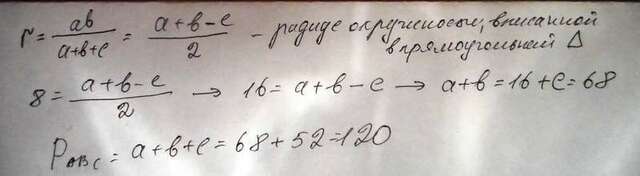 r = ab/(a+b+c) = (a+b-c)/2 - радиус окружности, вписанной
в прямоугольный △
8 = (a+b-c)/2 → 16 = a+b-c → a+b = 16+c = 68
P_ABC = a+b+c = 68+52=120